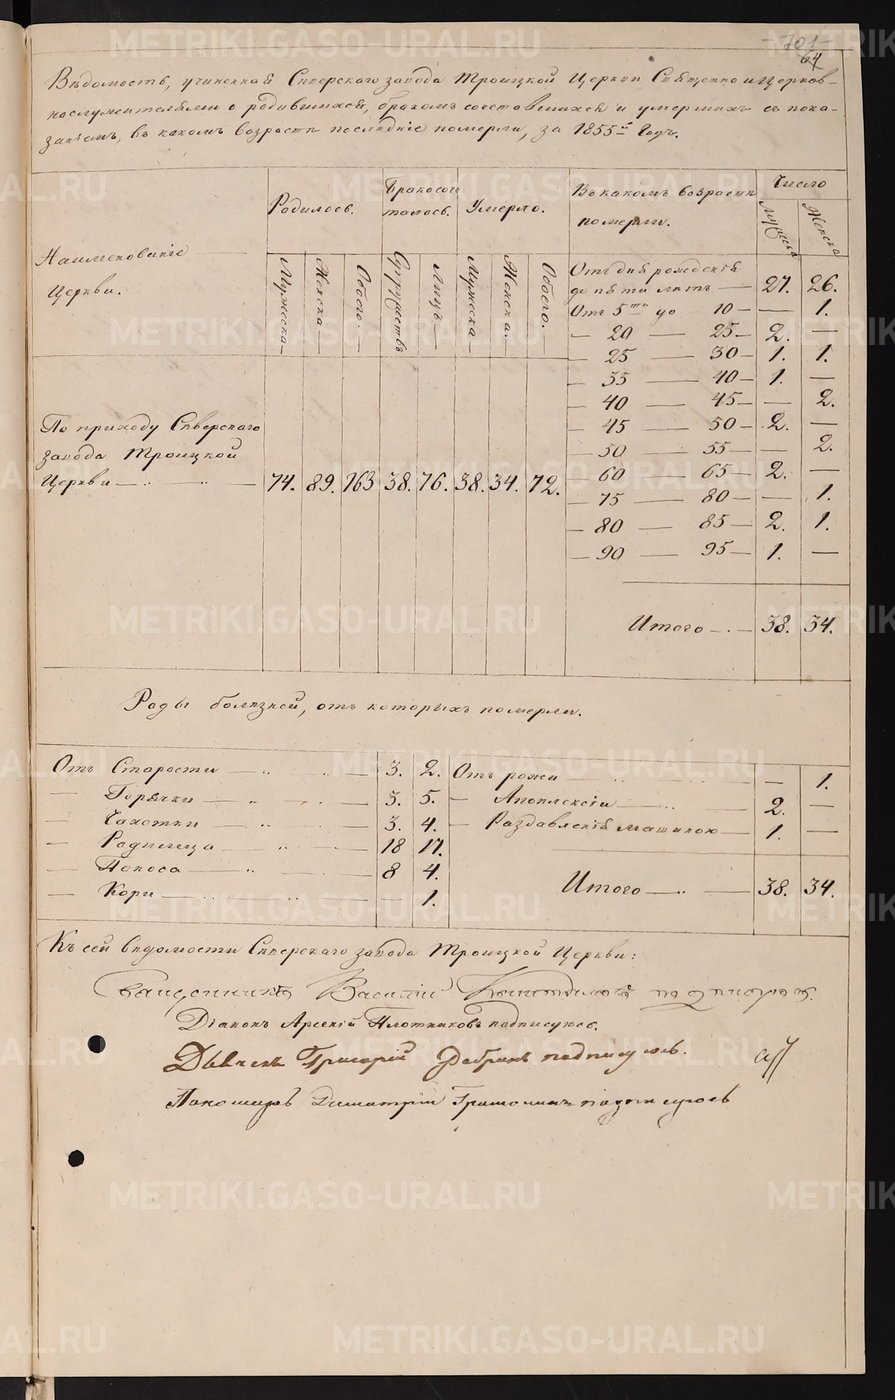 701
64
Вѣдомость, учиненная Сѣверскаго завода Троицкой Церкви Священно и Церков-
нослужителями о родившихся, бракомъ сочетавшихся и умершихъ съ пока-
заніемъ, въ какомъ возрастѣ послѣдніе померли, за 1855й Годъ.
Наименованіе Церкви.
Родилось. Мужеска Женска Обоего.
Бракосоче талось. Супружествъ Лицъ
Умерло. Мужеска Женска. Обоего.
Въ какомъ возрастѣ померли.
Число Мужеска Женска
По приходу Сѣверскаго
завода Троицкой
Церкви 74. 89. 163 38. 76. 38. 34. 72.
Отъ дня рожденія
до пяти лѣтъ — 27. 26.
Отъ 5ти до 10 — — 1.
— 20 — 25 — 2. —
— 25 — 30 — 1. 1.
— 35 — 40 — 1. —
— 40 — 45 — — 2.
— 45 — 50 — 2. —
— 50 — 55 — — 2.
— 60 — 65 — 2. —
— 75 — 80 — — 1.
— 80 — 85 — 2. 1.
— 90 — 95 — 1. —
Итого — 38. 34.
Роды болѣзней, отъ которыхъ померли.
Отъ Старости 3. 2.
— Горячки 3. 5.
— Чахотки 3. 4.
— Родимца 18 17.
— Поноса 8 4.
— Кори 1.
Отъ рожи — 1.
— Апоплексіи 2. —
— Раздавленія машиною 1. —
Итого — 38. 34.
Къ сей вѣдомости Сѣверскаго завода Троицкой Церкви:
Священникъ Василій подписался.
Діаконъ Арсеній Плотниковъ подписуюсь.
Дьячекъ Григорій подписуюсь.
Пономарь Димитрій подписуюсь
METRIKI.GASO-URAL.RU